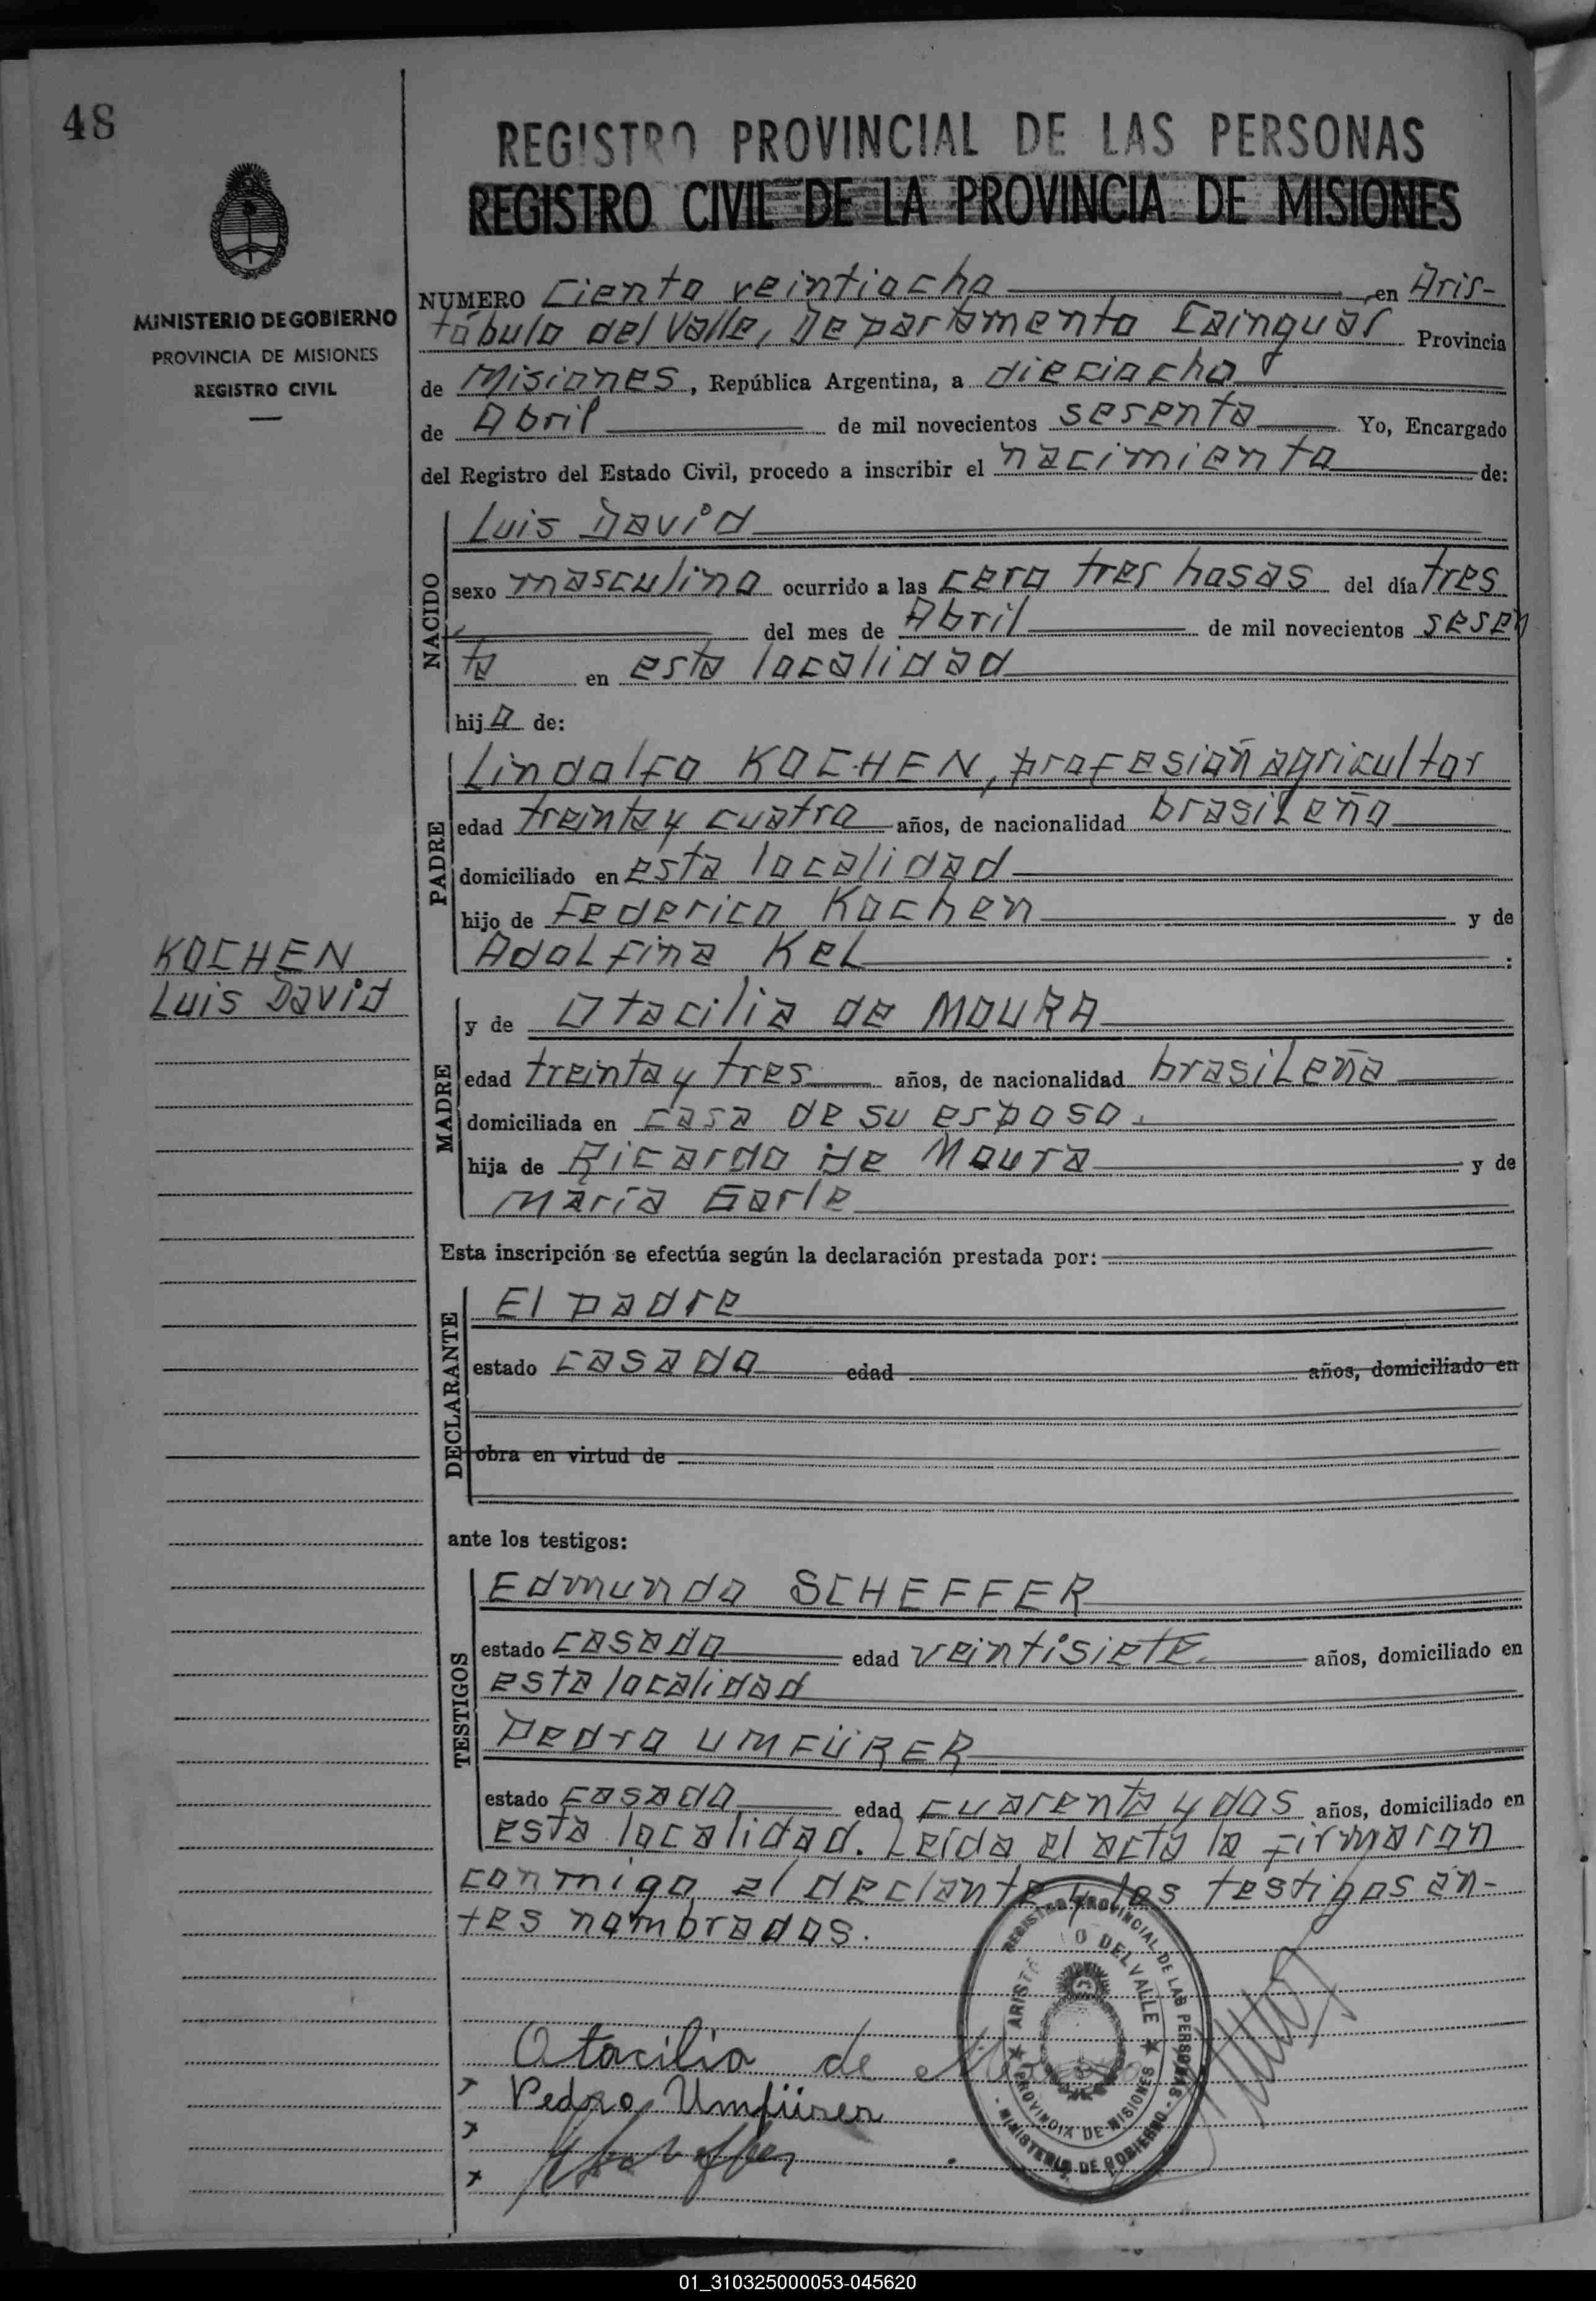 48
REGISTRO PROVINCIAL DE LAS PERSONAS
REGISTRO CIVIL DE LA PROVINCIA DE MISIONES
MINISTERIO DE GOBIERNO
PROVINCIA DE MISIONES
REGISTRO CIVIL
NUMERO Ciento veintiocho en Aris-
tóbulo del Valle, Departamento Cainguás Provincia
de Misiones, República Argentina, a dieciocho
de Abril de mil novecientos sesenta Yo, Encargado
del Registro del Estado Civil, procedo a inscribir el nacimiento de:
NACIDO
Luis David
sexo masculino ocurrido a las cero tres hosas del día tres
del mes de Abril de mil novecientos sesen
ta en esta localidad
hijo de:
PADRE
Lindolfo KOCHEN, profesión agricultor
edad treinta y cuatro años, de nacionalidad brasileño
domiciliado en esta localidad
hijo de Federico Kochen y de
Adolfina Kel :
KOCHEN
Luis David
MADRE
y de Otacilia de MOURA
edad treinta y tres años, de nacionalidad brasileña
domiciliada en casa de su esposo.
hija de Ricardo de Moura y de
María Garle
Esta inscripción se efectúa según la declaración prestada por:
DECLARANTE
El padre
estado casado edad años, domiciliado en
obra en virtud de
ante los testigos:
TESTIGOS
Edmundo SCHEFFER
estado casado edad veintisiete. años, domiciliado en
esta localidad
Pedro UMFÜRER
estado casado edad cuarenta y dos años, domiciliado en
esta localidad. Leída el acta la firmaron
conmigo el declante y los testigos an-
tes nombrados.
REGISTRO PROVINCIAL DE LAS PERSONAS
MINISTERIO DE GOBIERNO
PROVINCIA DE MISIONES
Otacilia de
Pedro Umfürer
01_310325000053-045620